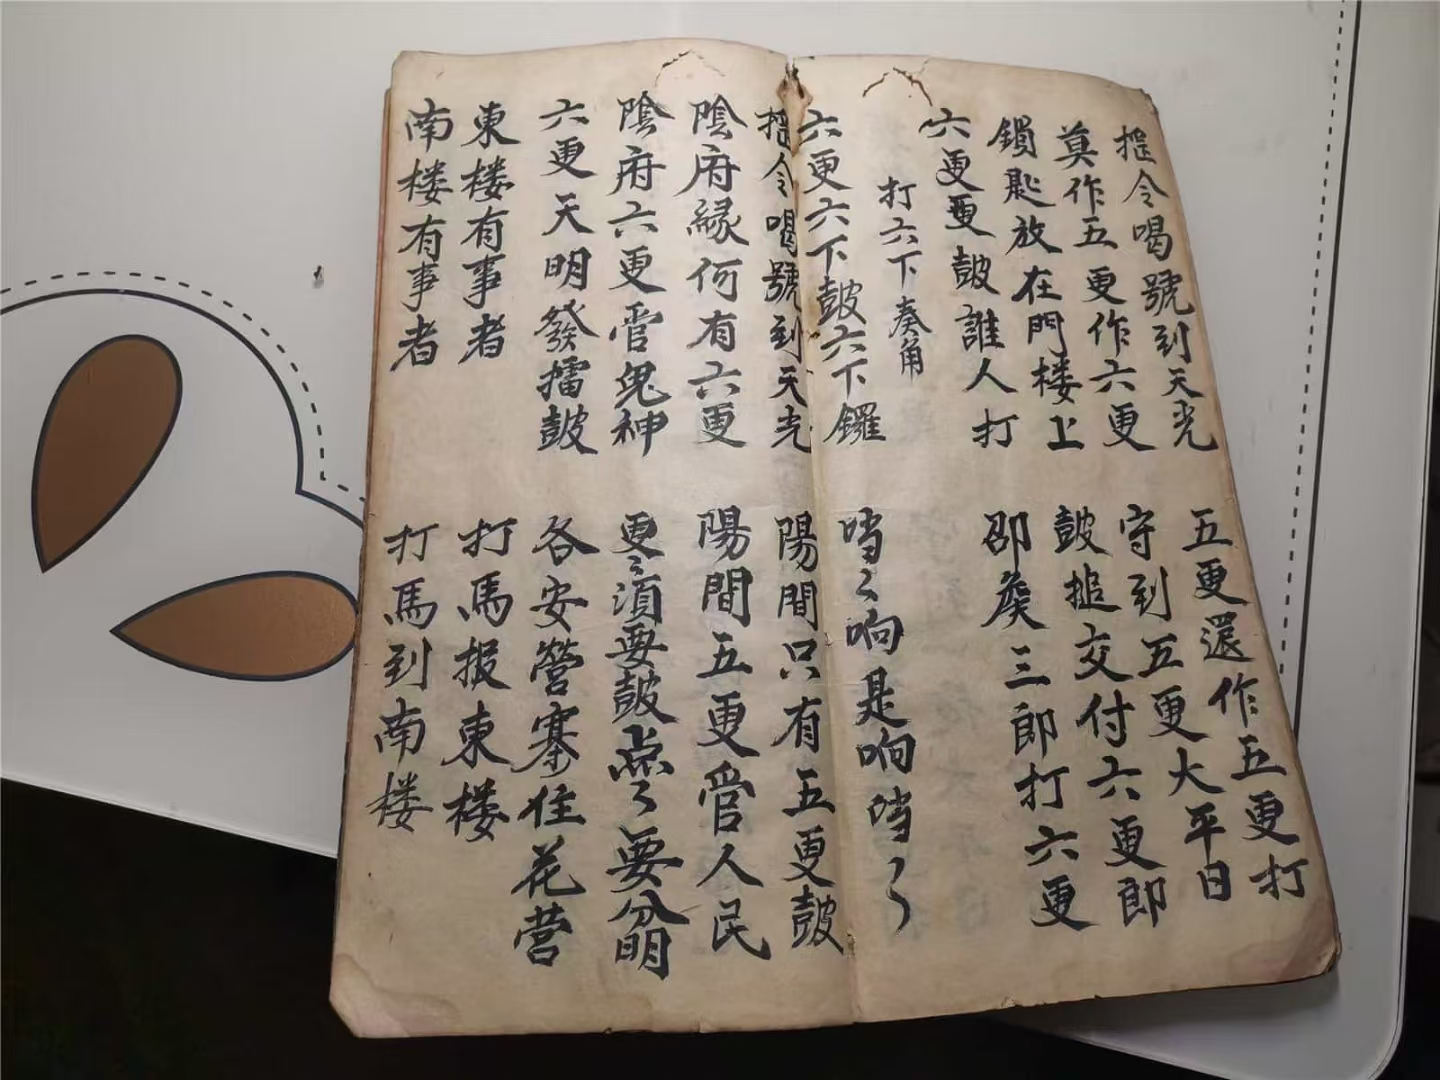 摇令喝號到天光
五更還作五更打
莫作五更作六更
守到五更大平日
鎖匙放在門楼上
鼓搥交付六更郎
六更更鼓誰人打
邵矦三郎打六更
打六下奏角
六更六下鼓六下鑼
噹〻响是响噹〻
摇令喝號到天光
陽間只有五更鼓
陰府縁何有六更
陽間五更管人民
陰府六更管鬼神
更〻須要鼓点〻要分明
六更天明發擂鼓
各安營寨住花营
東楼有事者
打馬报東楼
南楼有事者
打馬到南楼